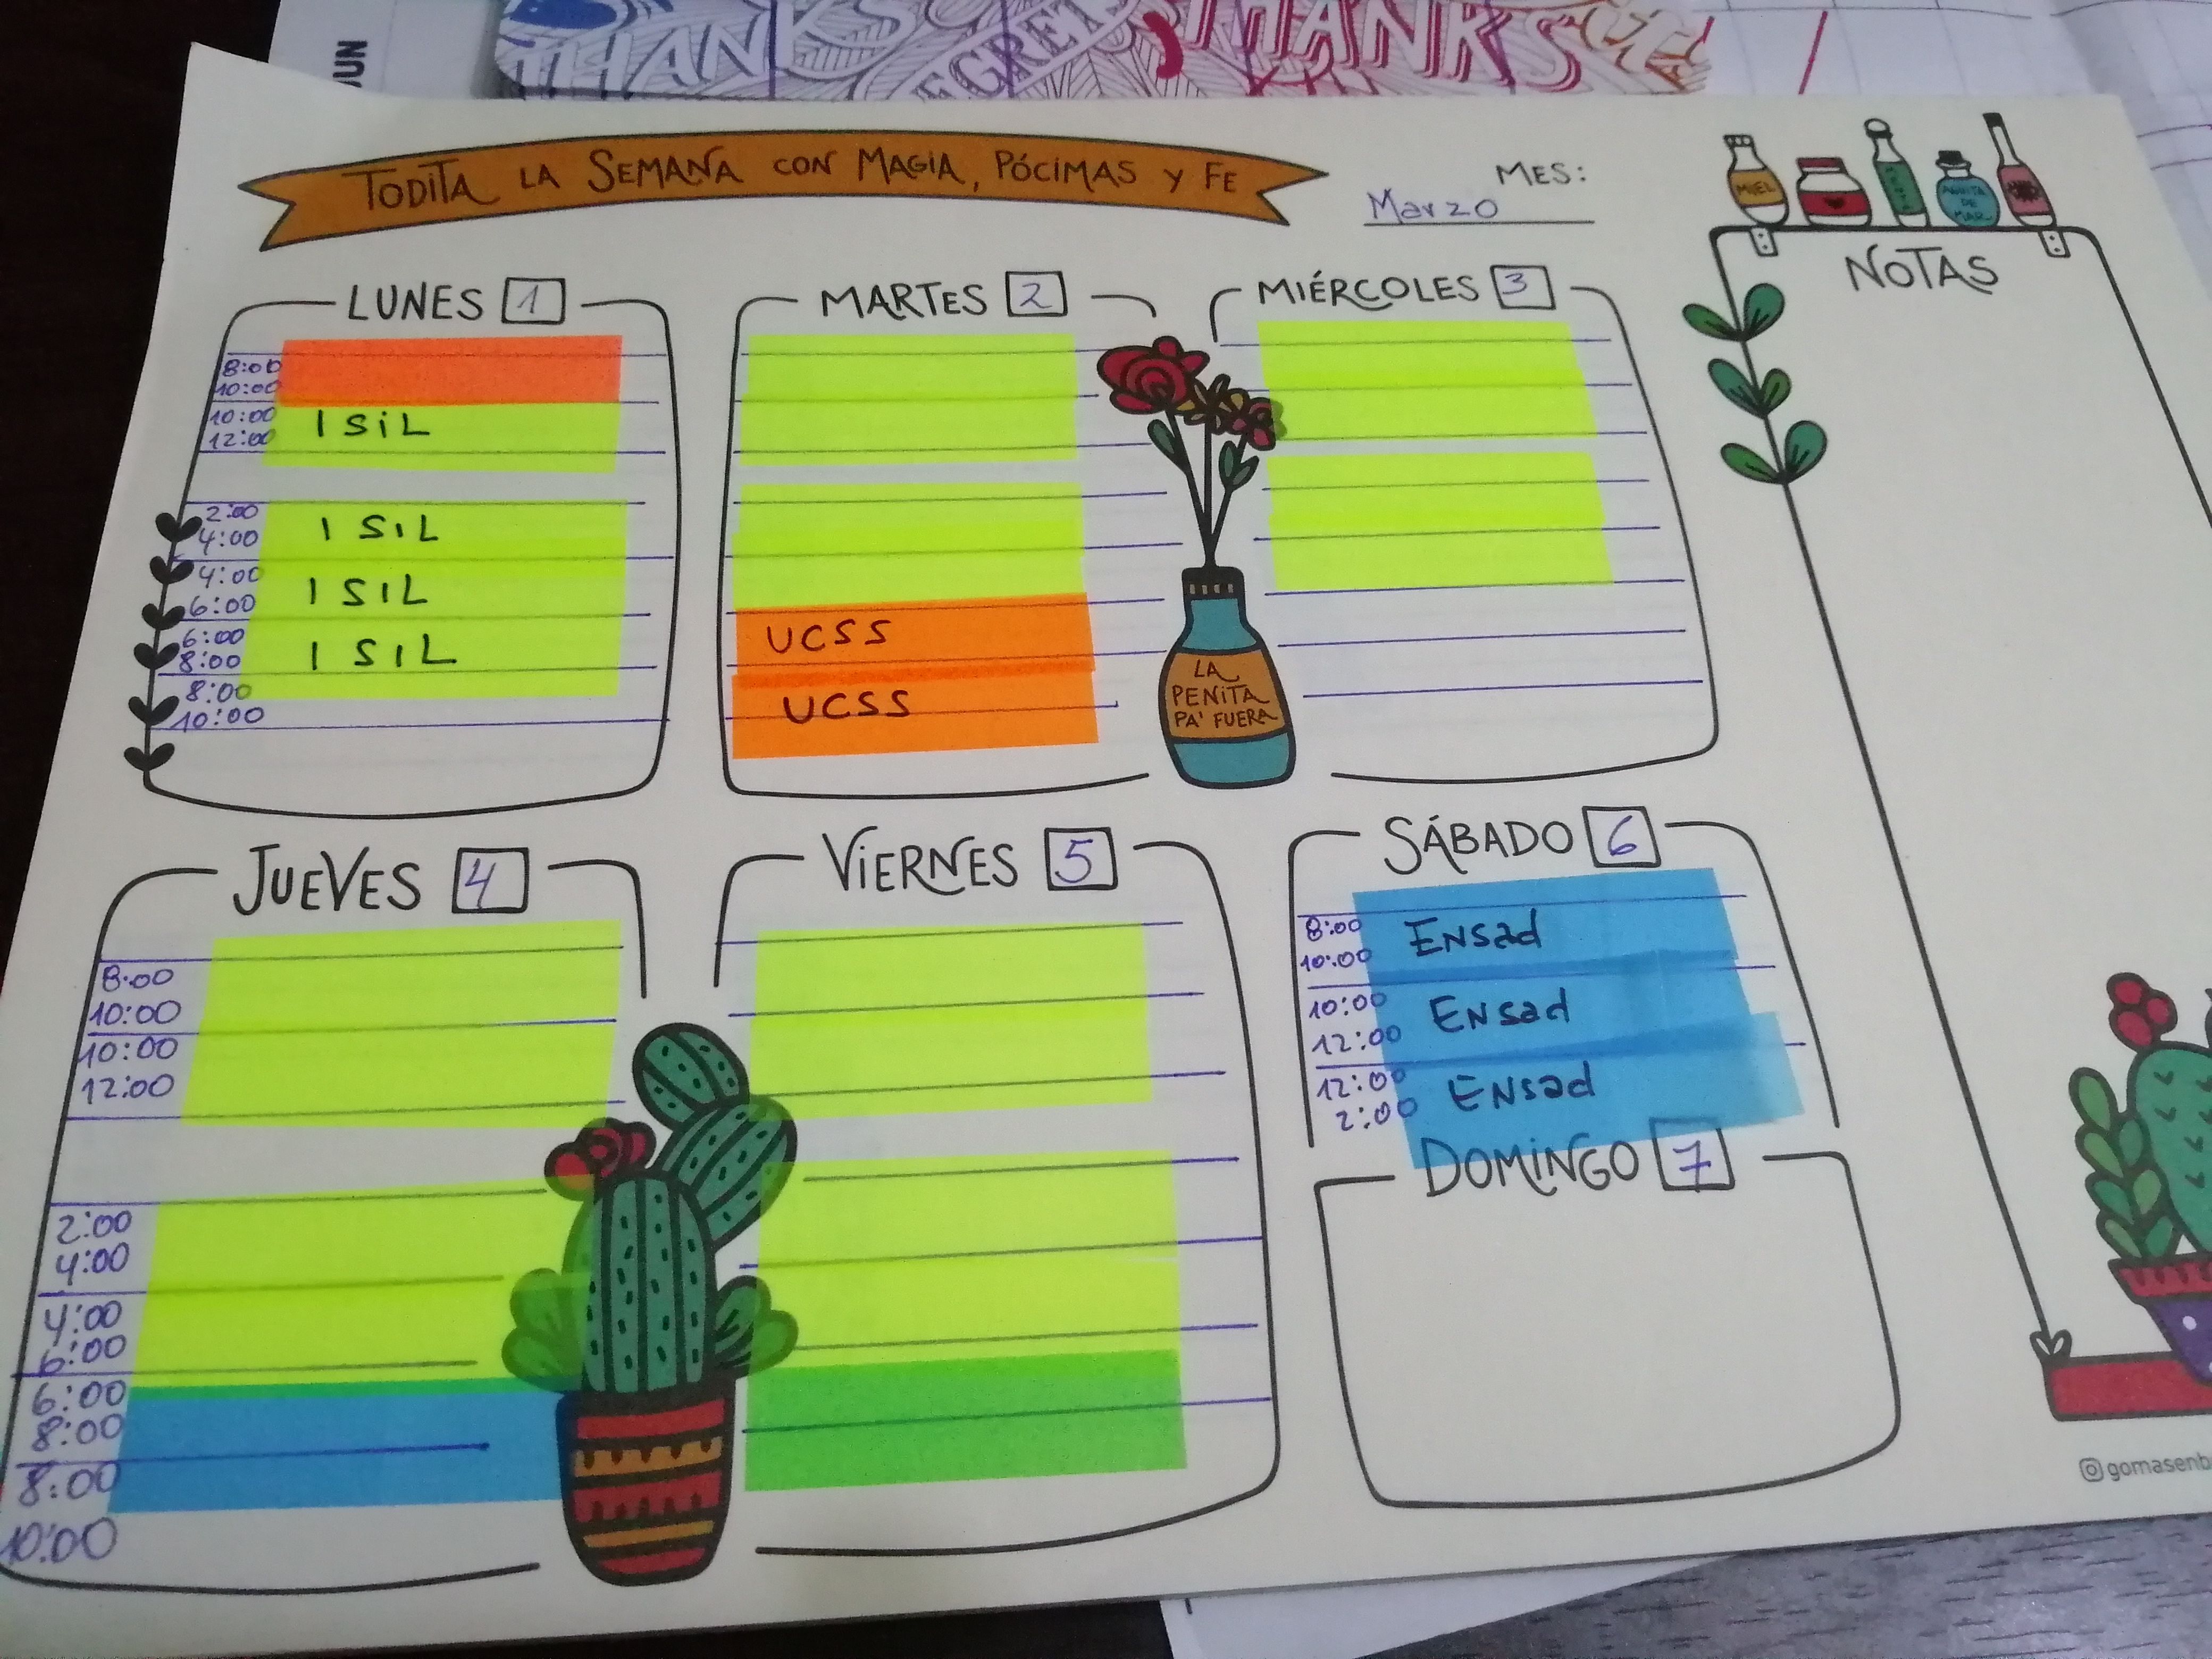 JUN
THANKS
THANKS
TODITA LA SEMANA CON MAGIA, PÓCIMAS Y FE
MES:
Marzo
MIEL
AGÜITA
DE
MAR
NOTAS
LUNES 1
8:00
10:00
10:00
12:00
ISIL
2:00
4:00
ISIL
4:00
6:00
ISIL
6:00
8:00
ISIL
8:00
10:00
MARTES 2
UCSS
UCSS
LA
PENITA
PA' FUERA
MIÉRCOLES 3
JUEVES 4
8:00
10:00
10:00
12:00
2:00
4:00
4:00
6:00
6:00
8:00
8:00
10:00
VIERNES 5
SÁBADO 6
8:00
10:00
Ensad
10:00
12:00
Ensad
12:00
2:00
Ensad
DOMINGO 7